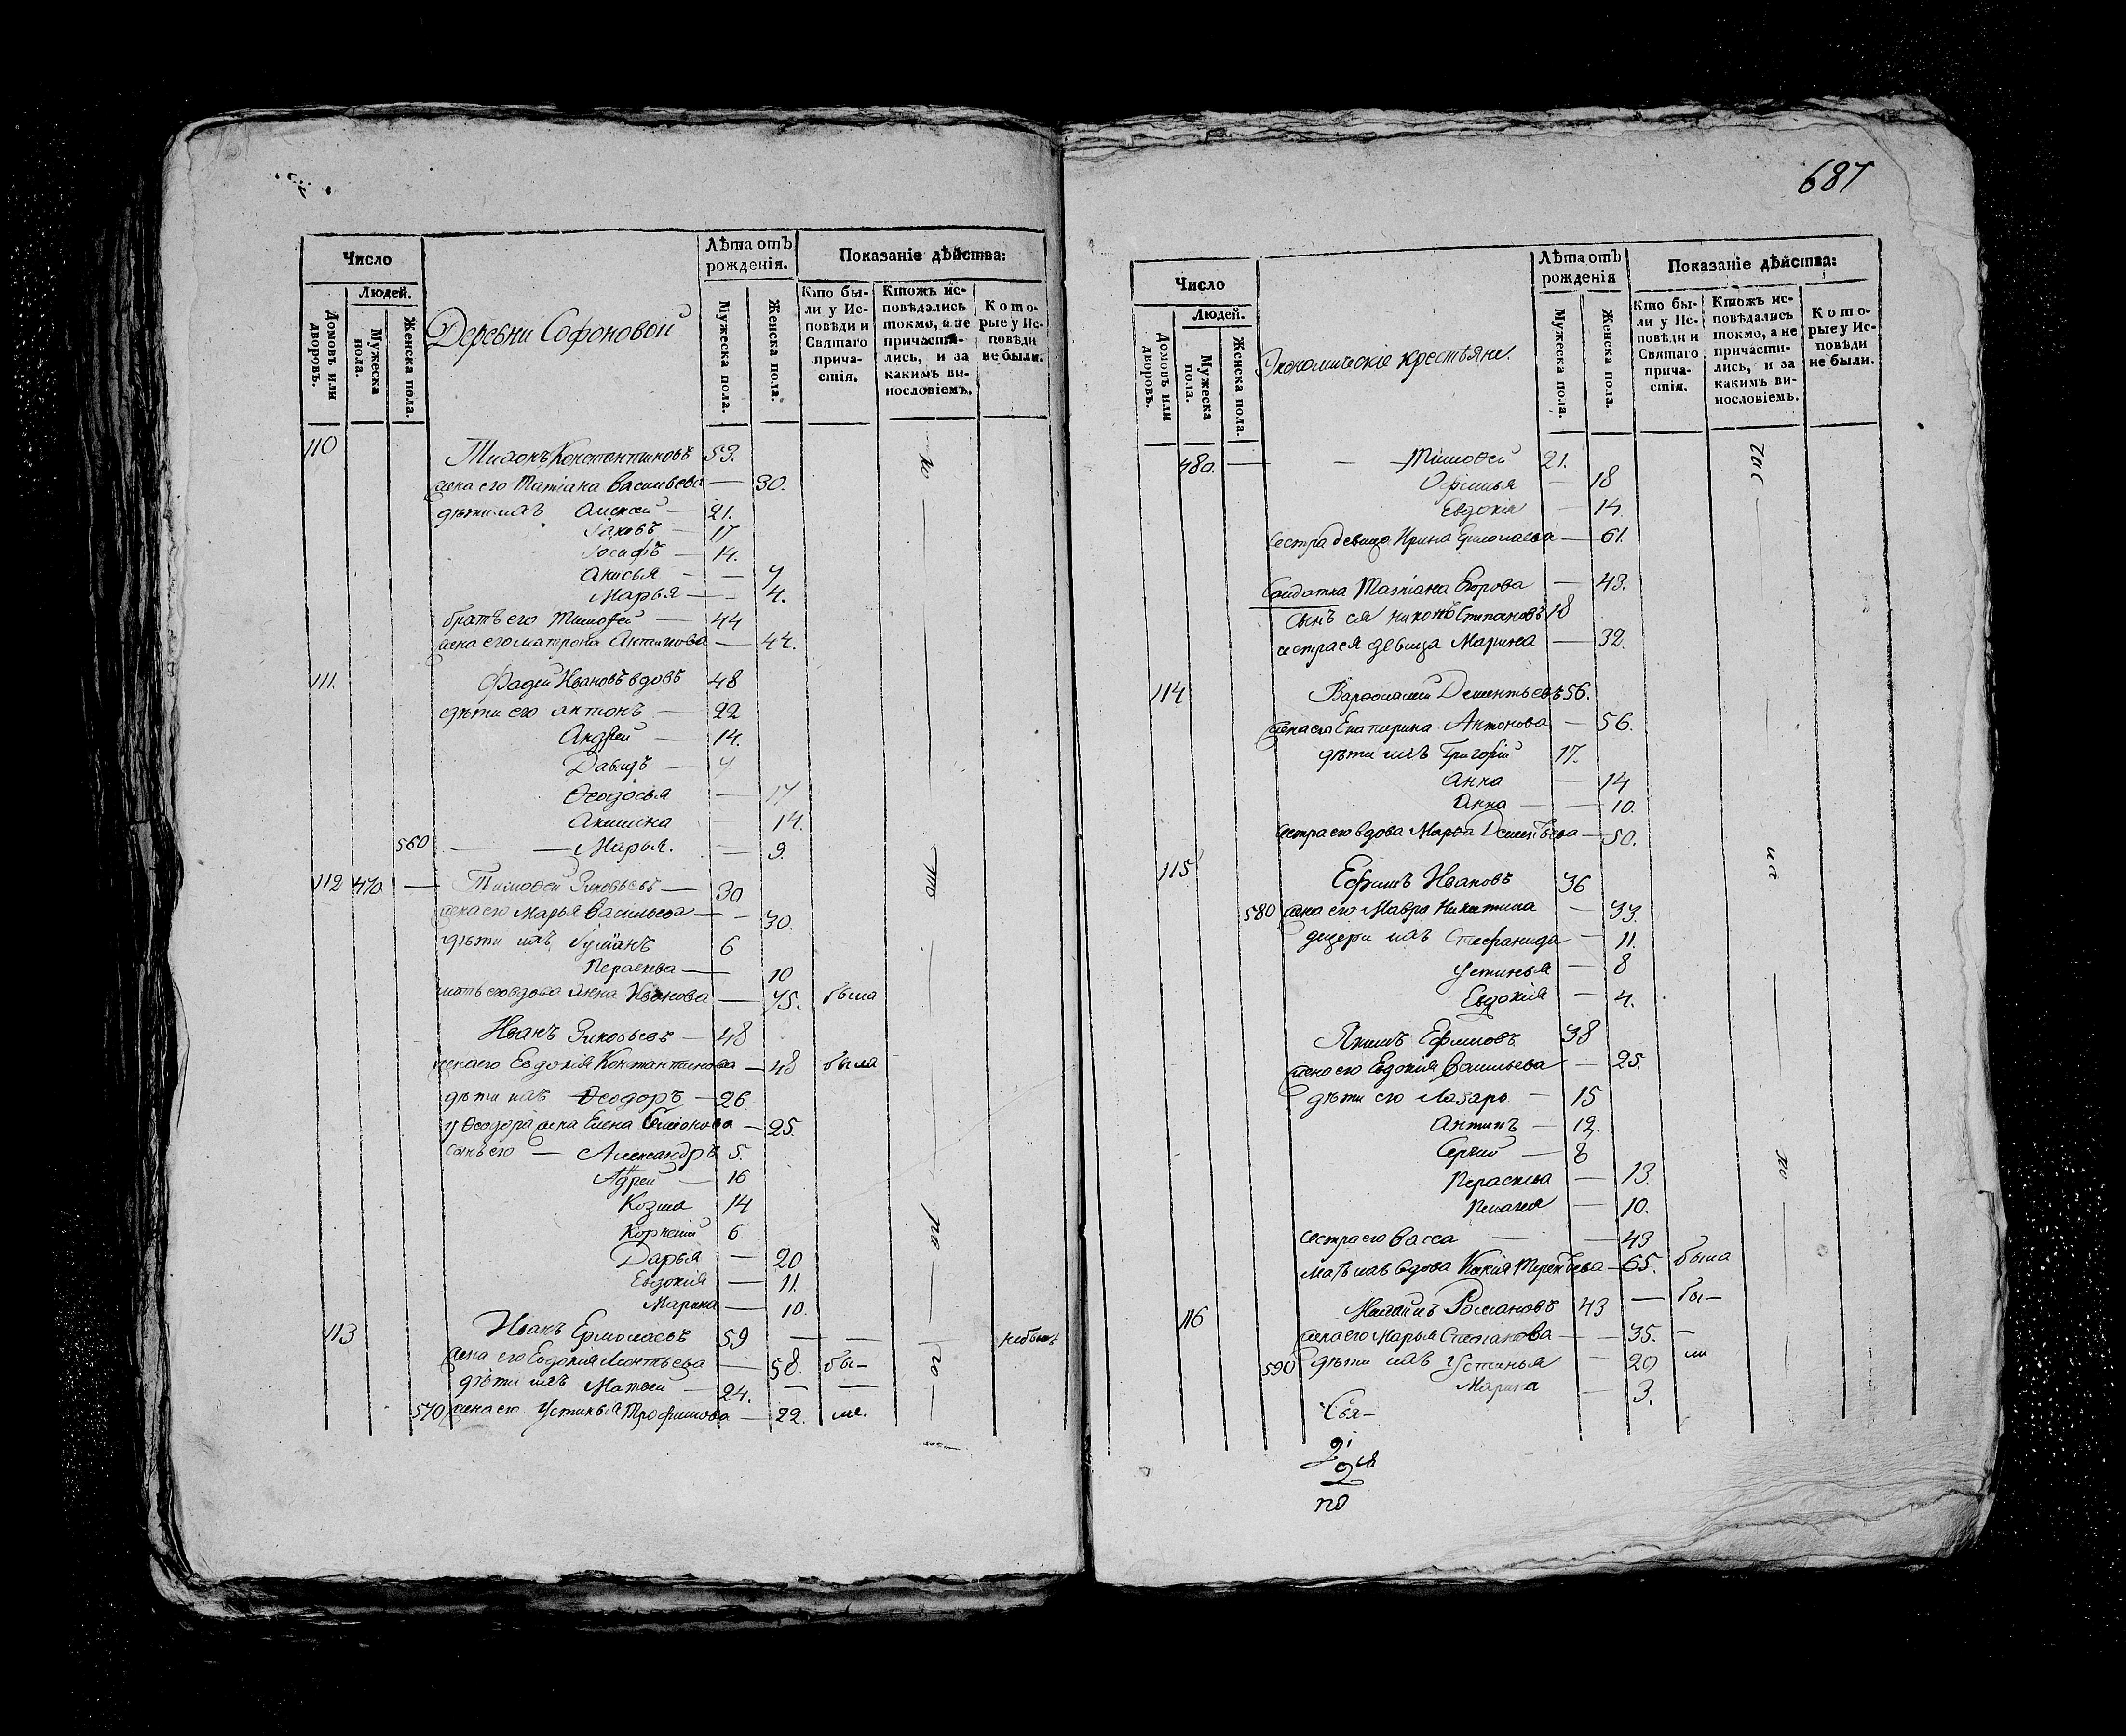 687
Число
Людей.
Домовъ или дворовъ.
Мужеска пола.
Женска пола.
Деревни Софоновой
Лѣта отъ рожденія.
Мужеска пола.
Женска пола.
Показаніе дѣйства:
Кто бы-
ли у Ис-
повѣди и
Святаго
прича-
стія.
Ктожъ ис-
повѣдались
токмо, а не
причасти-
лись, и за
какимъ ви-
нословіемъ.
Кото-
рые у Ис-
повѣди
не были.
110 Тихонъ Константиновъ 53.
жена его Татіана Васильева — 30.
дѣти ихъ Алексей — 21.
Іаковъ — 17
Іосифъ — 14.
Анисья — — 7
Марья — — 4.
братъ его Тимофей — 44
жена его Матрона Антипова — 44.
111. Фадей Ивановъ вдовъ 48
дѣти его Антонъ — 22
Андрей — 14.
Давидъ — 7
Ѳеодосья — 17
Акилина — 14.
560 — — Марья. — 9.
112 470 — Тимофей Зиновьевъ — 30
жена его Марья Васильева — — 30.
дѣти ихъ 6
Параскева — 10
мать его вдова Анна Иванова — 75. была
Иванъ Зиновьевъ — 48
жена его Евдокія Константинова — 48 была
дѣти ихъ Ѳеодоръ — 26
у Ѳеодора жена Елена Симонова — 25.
сынъ его — Александръ 5.
Адрей — 16
Козма 14
Корнилий 6
Дарья — 20
Евдокія — 11.
Марина — 10.
113 Иванъ Ермолаевъ 59 — — небылъ
жена его Евдокія Леонтьева — 58. бы-
дѣти ихъ Матвей — 24. — —
570 жена его Устинья Трофимова — 22. ли.
Число
Людей.
Домовъ или дворовъ.
Мужеска пола.
Женска пола.
Экономическіе крестьяне.
Лѣта отъ рожденія
Мужеска пола.
Женска пола.
Показаніе дѣйства:
Кто бы-
ли у Ис-
повѣди и
Святаго
прича-
стія.
Ктожъ ис-
повѣдались
токмо, а не
причасти-
лись, и за
какимъ ви-
нословіемъ.
Кото-
рые у Ис-
повѣди
не были.
480. — — — Тимофей 21.
Офимья — 18
Евдокія — 14.
сестра девица Ирина Ермолаева — 61.
Солдатка Татіана Егорова — 43.
сынъ ея Никонъ Степановъ 18
сестра ея девица Марина — 32.
114 Варфоломей Дементьевъ 56.
жена его Екатерина Антонова — 56.
дѣти ихъ Григорій 17.
Анна — 14
Анна — — 10.
сестра его вдова Марья Дементьева — 50.
115 Ефимъ Ивановъ 36
580 жена его Мавра Никитина — 33.
дщери ихъ Стефанида — 11.
Устинья — 8
Евдокія — 4.
Якимъ Ефимовъ 38
жена его Евдокія Васильева — 25.
дѣти его Лазарь — 15
Антипъ — 12.
Сергей — 8
Параскева — 13.
Пелагея — 10.
сестра его Васса — — 43
мать ихъ вдова Терентьева — 65. была
116 Романовъ 43 — бы-
жена его Марья Степанова — — 35. —
590 дѣти ихъ Устинья — 20 ли
Марина — 3.
Свя-